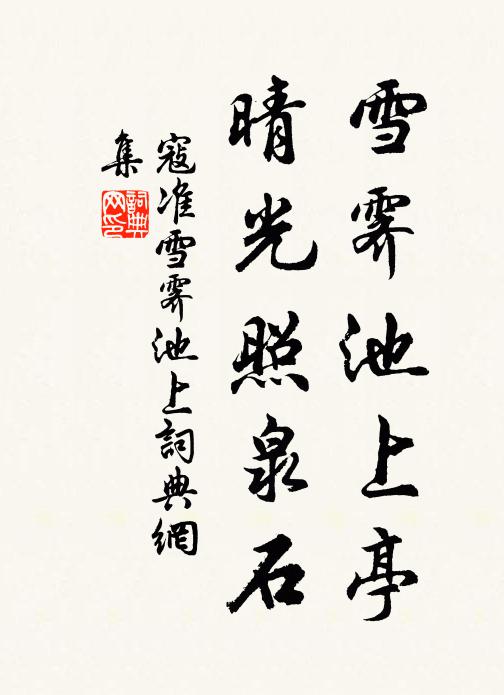 雪霽池上亭
晴光照泉石
寇准雪霽池上詞典網
集
詞典
网印